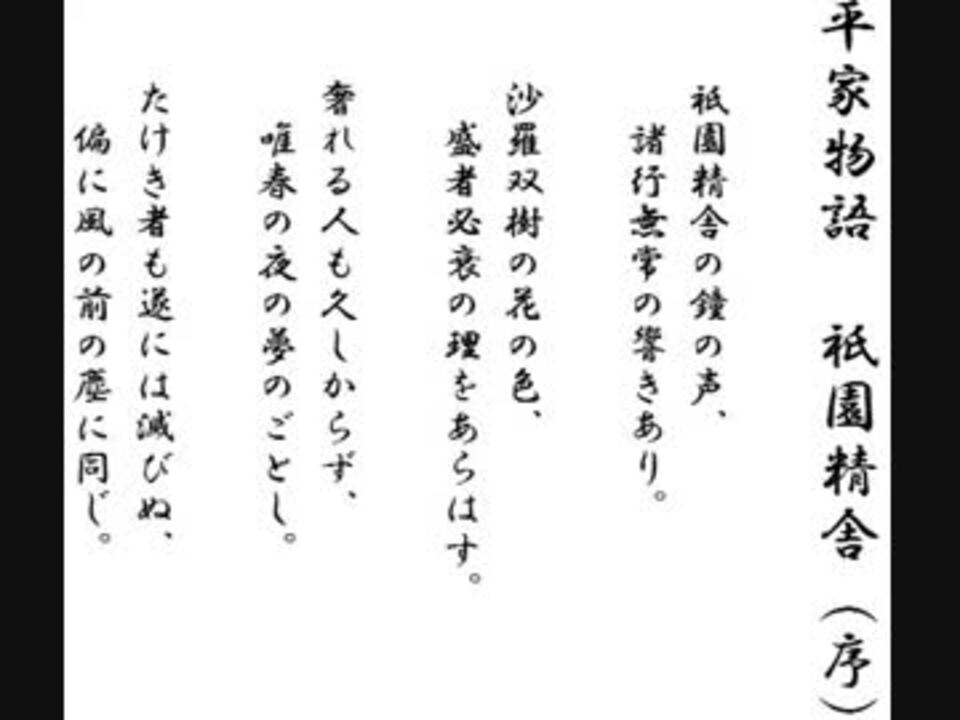 平家物語　祇園精舎（序）
祇園精舎の鐘の声、
諸行無常の響きあり。
沙羅双樹の花の色、
盛者必衰の理をあらはす。
奢れる人も久しからず、
唯春の夜の夢のごとし。
たけき者も遂には滅びぬ、
偏に風の前の塵に同じ。